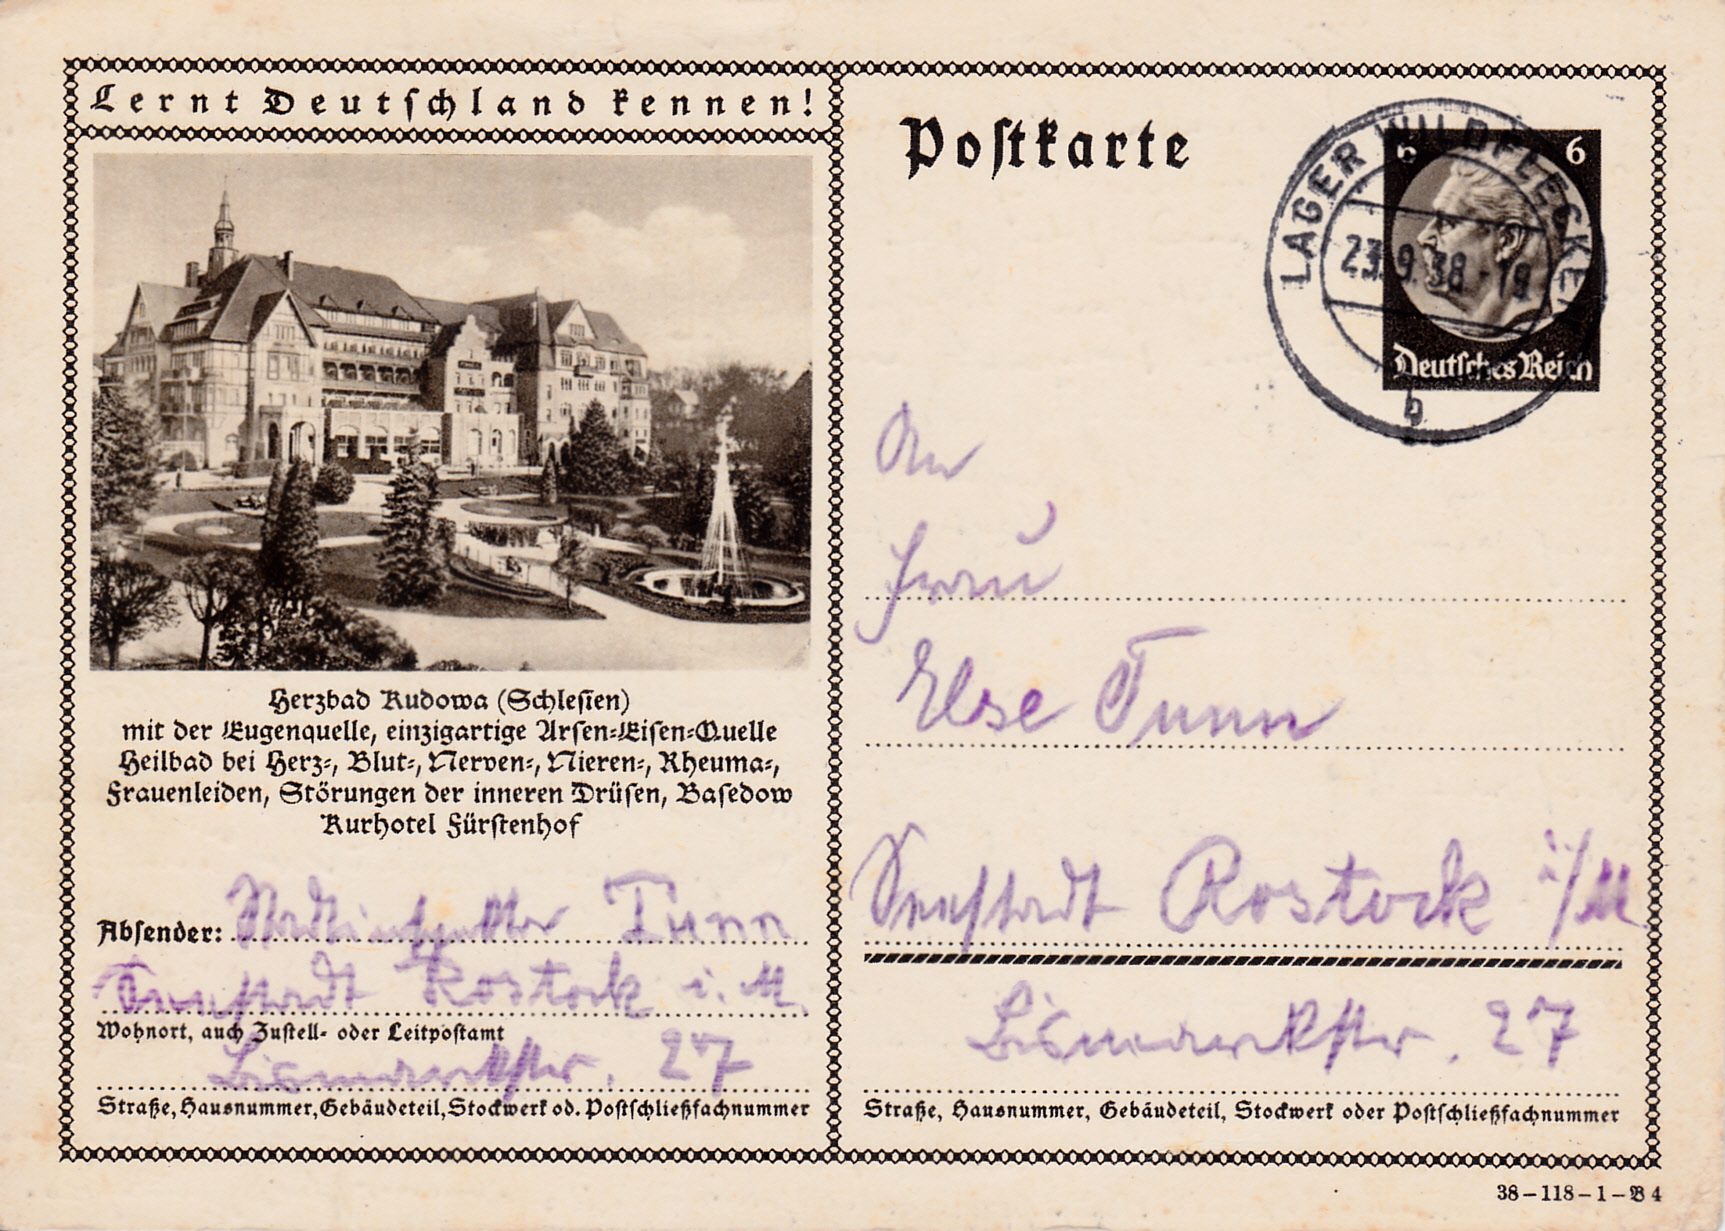 Lernt Deutschland kennen!
Herzbad Kudowa (Schlesien)
mit der Eugenquelle, einzigartige Arsen-Eisen-Quelle
Heilbad bei Herz-, Blut-, Nerven-, Nieren-, Rheuma-,
Frauenleiden, Störungen der inneren Drüsen, Basedow
Kurhotel Fürstenhof
Absender: Tunn
Rostock i. M.
Wohnort, auch Zustell- oder Leitpostamt
Bismarckstr. 27
Straße, Hausnummer, Gebäudeteil, Stockwerk od. Postschließfachnummer
Postkarte
6 6
Deutsches Reich
LAGER WILDFLECKEN
23.9.38-19
b
An
Frau
Else Tunn
Seestadt Rostock i/M
Bismarckstr. 27
Straße, Hausnummer, Gebäudeteil, Stockwerk oder Postschließfachnummer
38-118-1-B 4